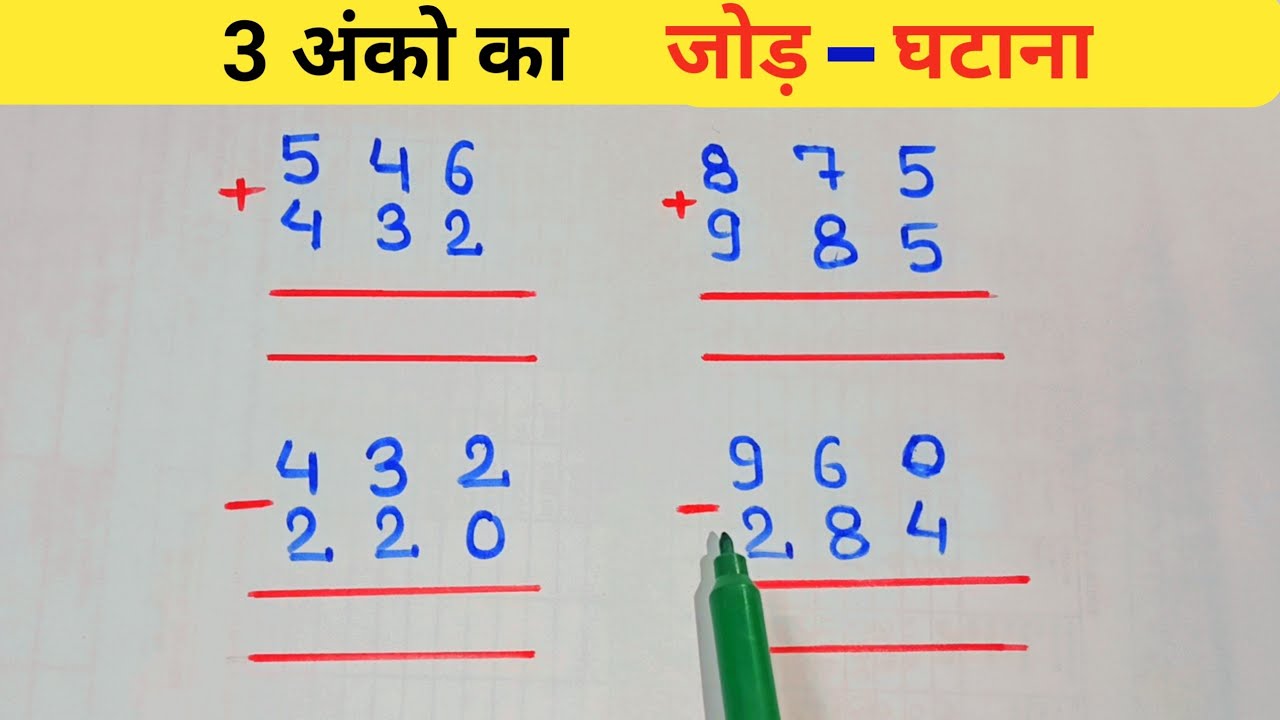 3 अंको का जोड़ – घटाना
5 4 6
+ 4 3 2
8 7 5
+ 9 8 5
4 3 2
- 2 2 0
9 6 0
- 2 8 4